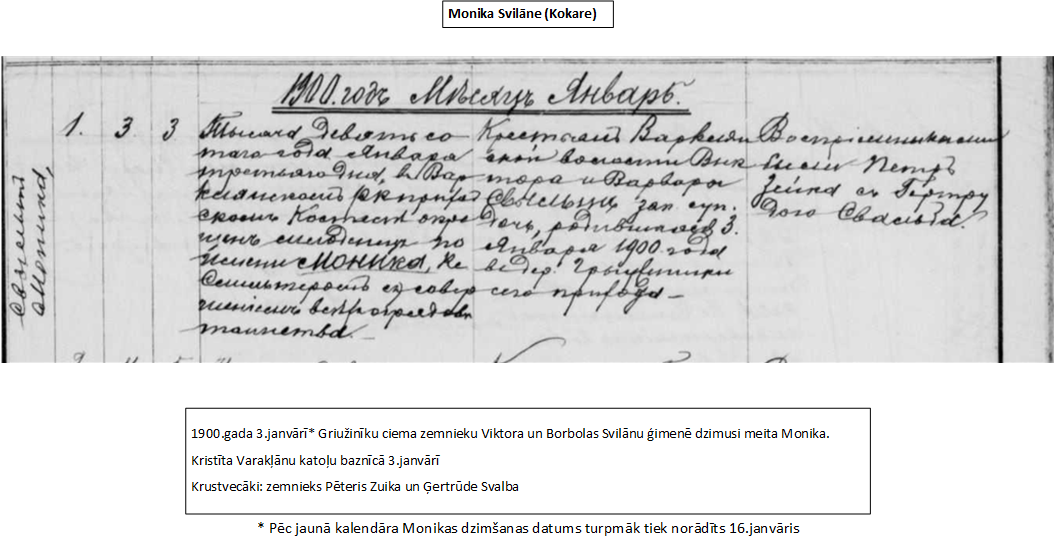 Monika Svilāne (Kokare)
1900. годъ Мѣсяцъ Январь.
1. 3. 3
Тысяча девятьсо
таго года Января
третьяго дня, въ Вар
клянскомъ
скомъ Костелѣ окре
щенъ младенецъ по
имени Моника,
таинства.
Крестьянъ Варклян
ской волости Вик
тора и Варвары
зак. суп.
дочь, родившаяся 3.
Января 1900. года
въ дер.
сего прихода
Воспріемниками
были Петръ
съ Гертру
дою
Моника,
1900.gada 3.janvārī* Griužinīku ciema zemnieku Viktora un Borbolas Svilānu ģimenē dzimusi meita Monika.
Kristīta Varakļānu katoļu baznīcā 3.janvārī
Krustvecāki: zemnieks Pēteris Zuika un Ģertrūde Svalba
* Pēc jaunā kalendāra Monikas dzimšanas datums turpmāk tiek norādīts 16.janvāris